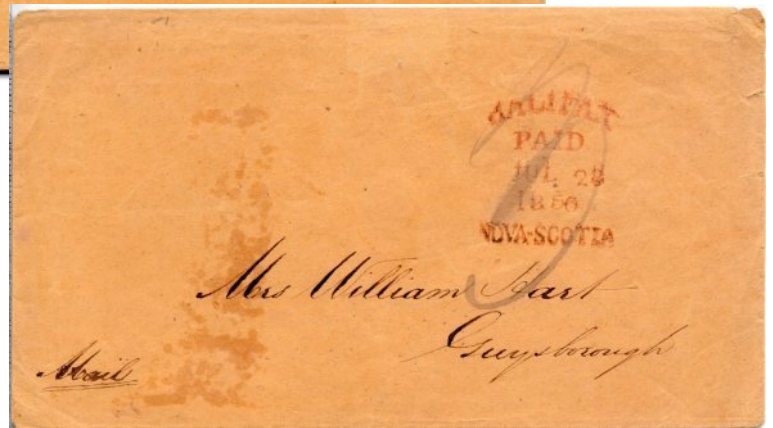 HALIFAX
PAID
JUL 28
NOVA-SCOTIA
Mrs William Hart
Guysborough
Mail